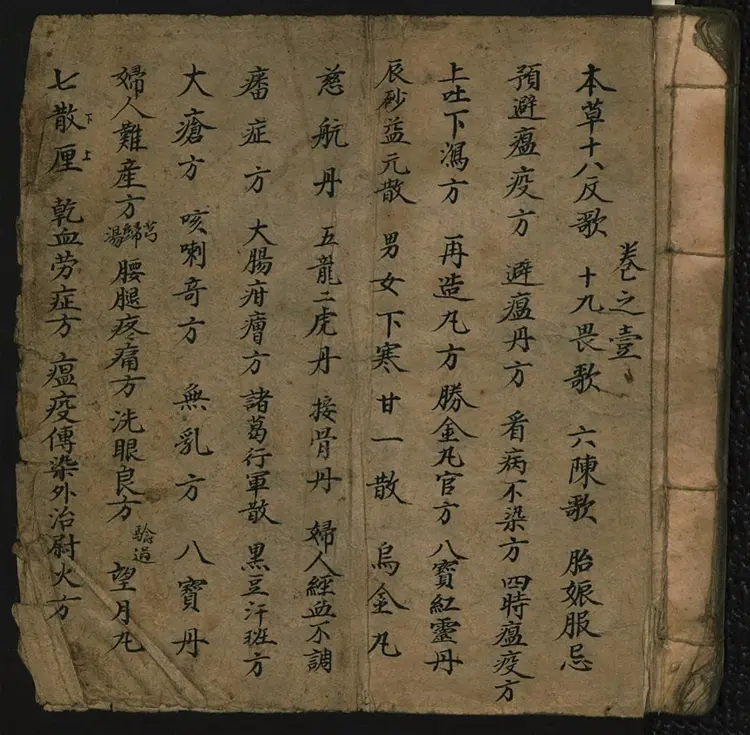 卷之壹
本草十八反歌 十九畏歌 六陳歌 胎娠服忌
預避瘟疫方 避瘟丹方 看病不染方 四時瘟疫方
上吐下瀉方 再造丸方 勝金丸官方 八寶紅靈丹
辰砂益元散 男女下寒甘一散 烏金丸
慈航丹 五龍二虎丹 接骨丹 婦人經血不調
症方 大腸疳方 諸葛行軍散 黑豆汗班方
大瘡方 咳喇奇方 無乳方 八寶丹
婦人難産方 芎歸湯 腰腿疼痛方 洗眼良方 驗過 望月丸
七散下厘上 乾血劳症方 瘟疫傳染外治尉火方